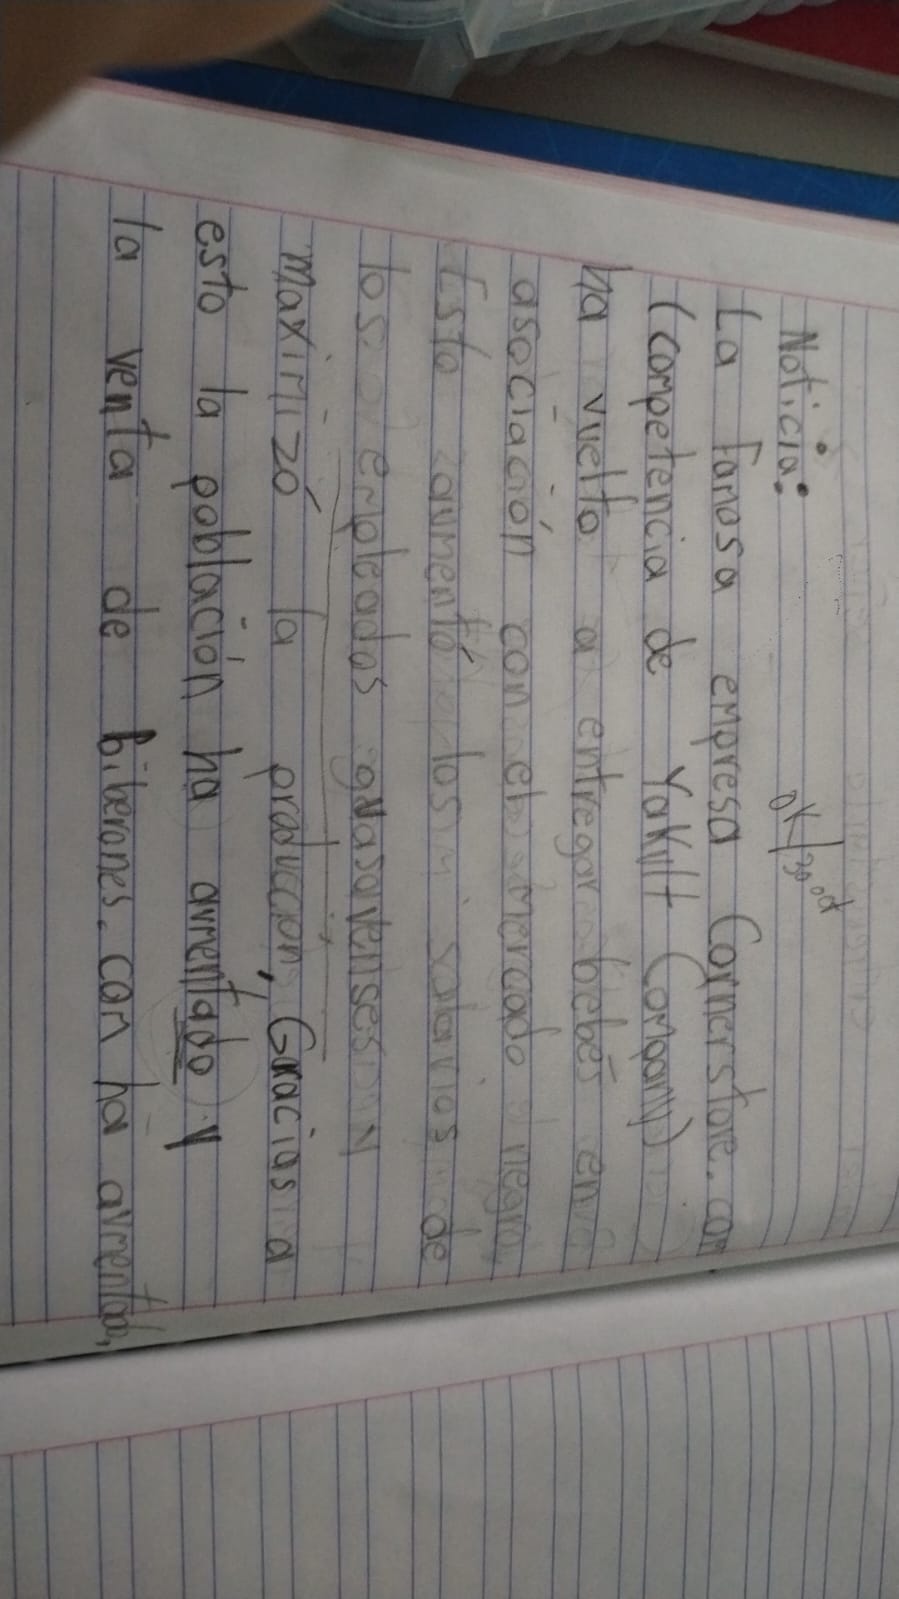 Noticia:
OK/30 oct
La famosa empresa Cornerstore.com
(competencia de Yakult Company)
ha vuelto a entregar bebés en
asociación con el mercado negro,
Esto aumentó los salarios de
los empleados y
maximizó la producción, Gracias a
esto la población ha aumentado y
la venta de biberones.com ha aumentado,